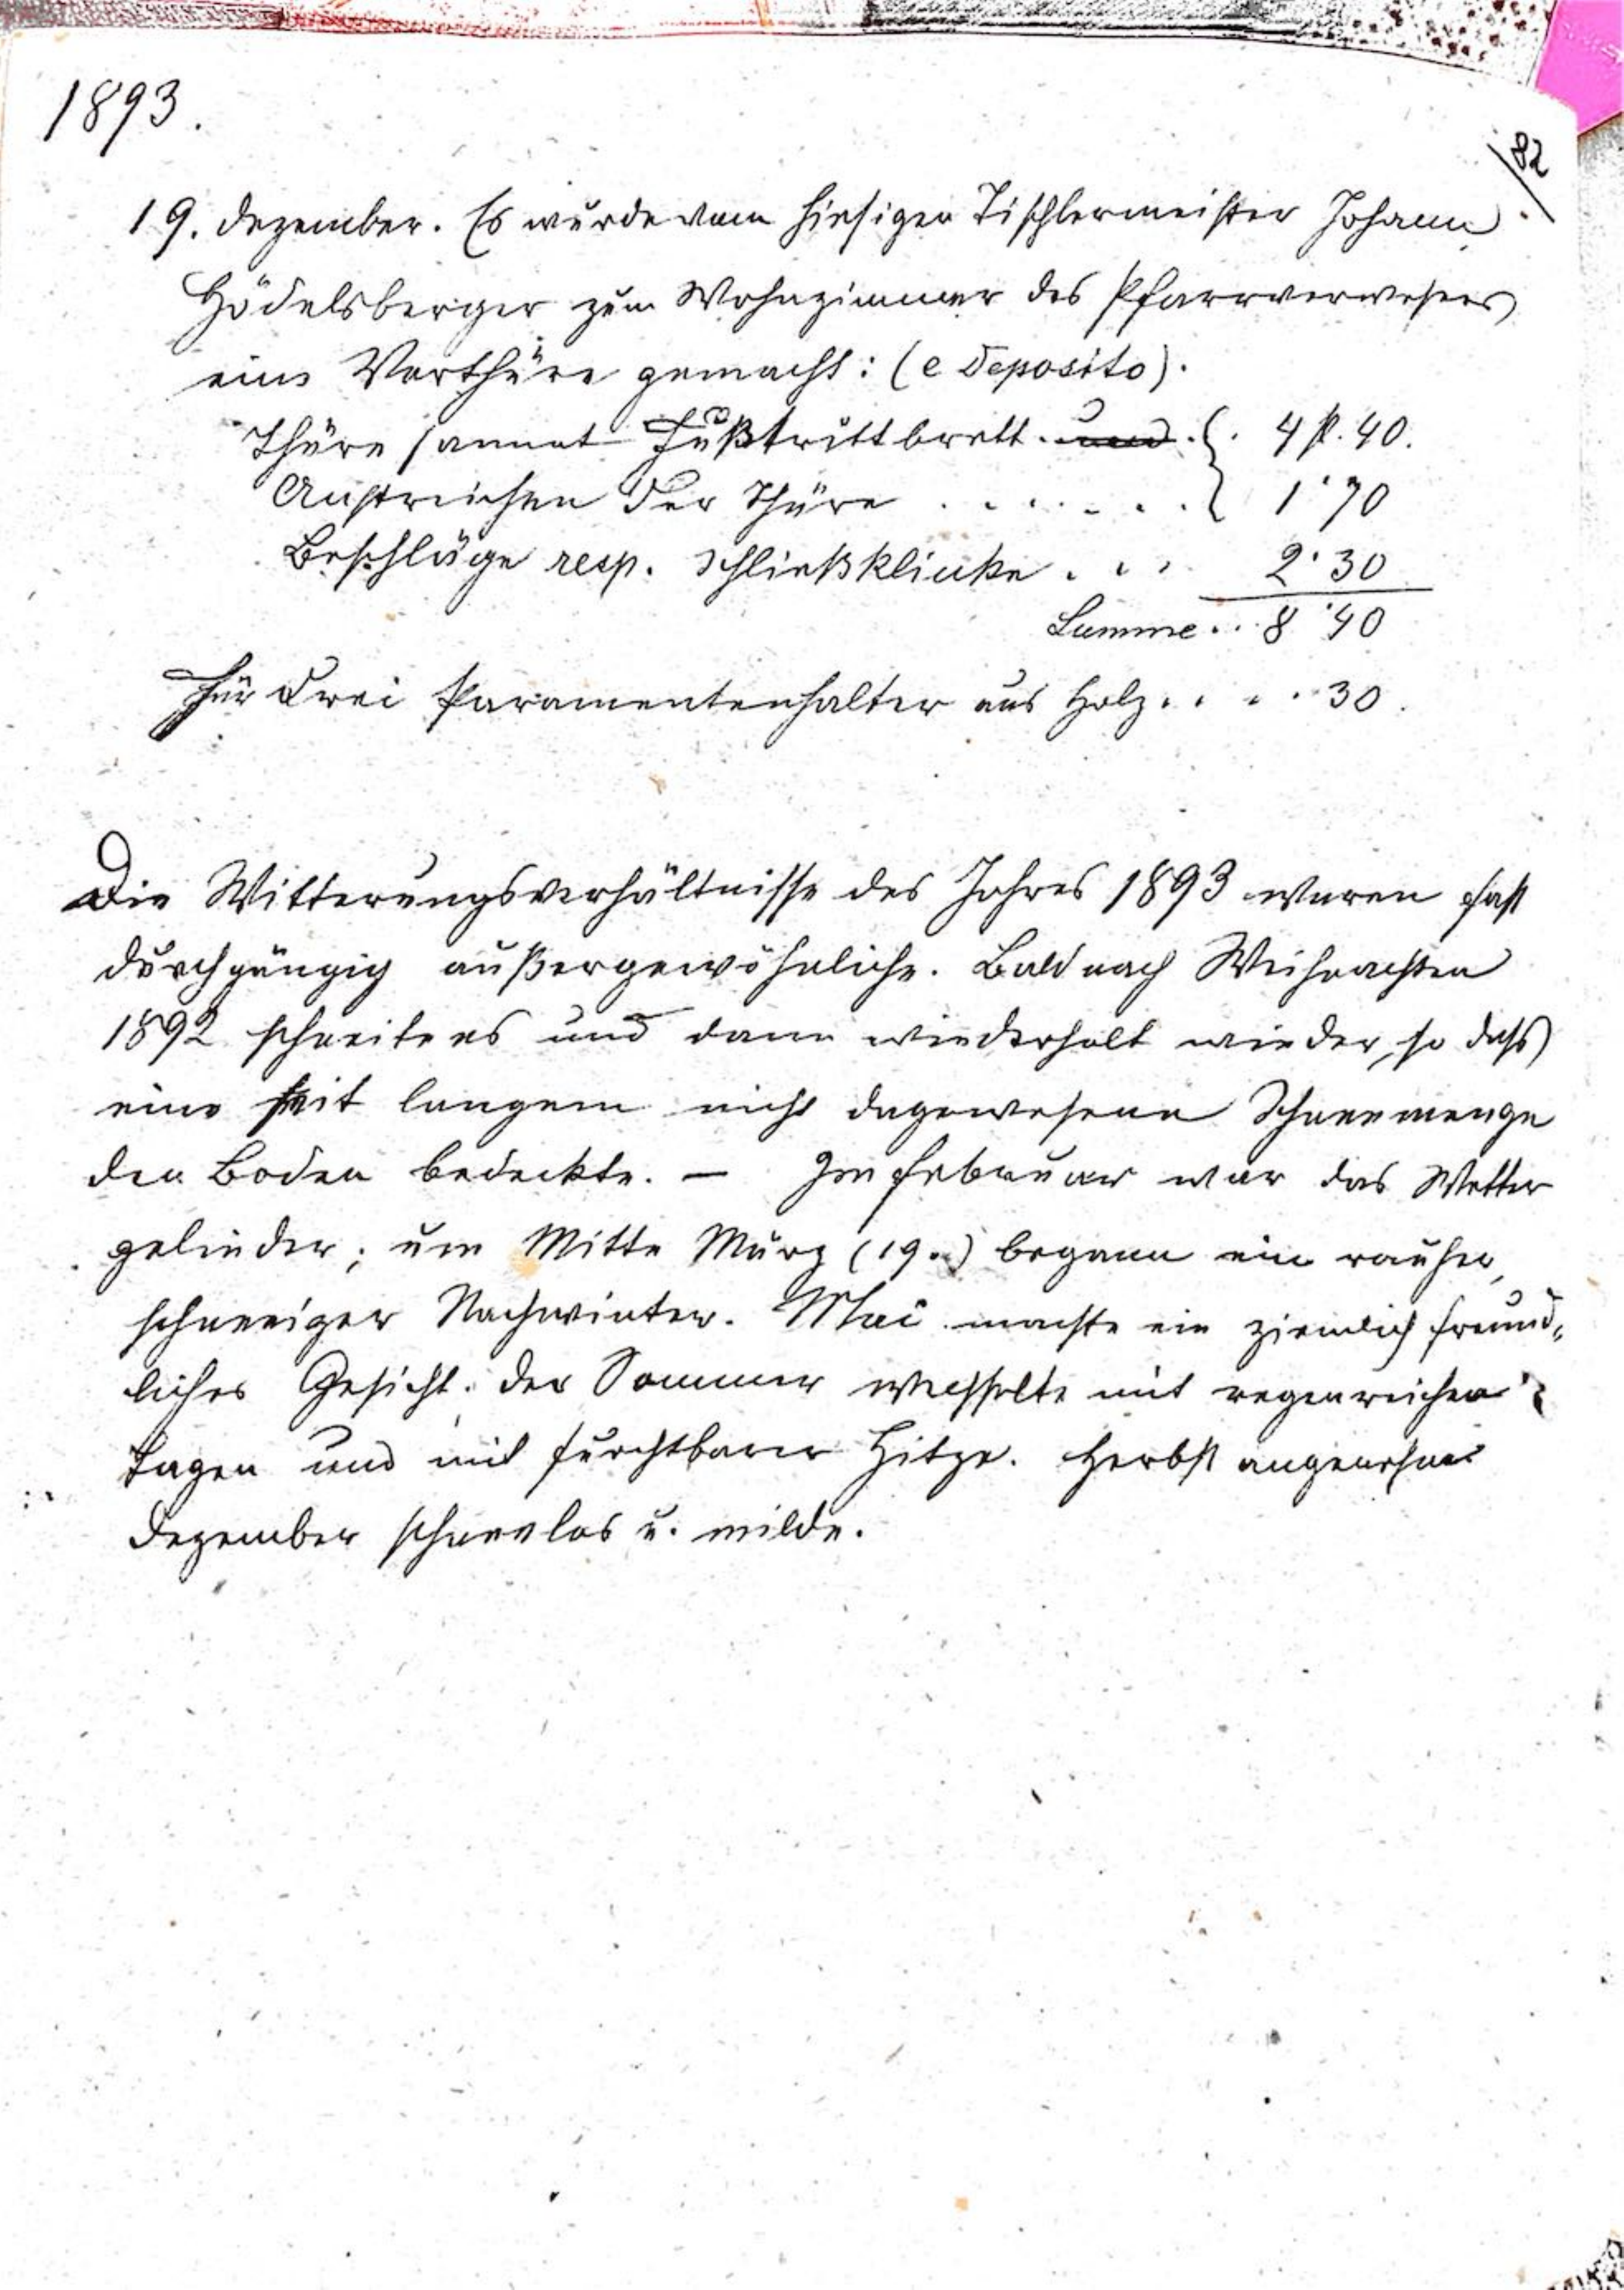 1893.
82
19. Dezember. Es wurde vom hiesigen Tischlermeister Johann
Hödelsberger zum Wohnzimmer des Pfarrverwesers
eine Vorthüre gemacht: (e deposito).
Thüre sammt Fußtrittbrett. und . 4 fl. 40.
Anstreichen der Thüre . . . . . . . 1·70
Beschläge resp. Schließklinke . . . 2·30
Summe . . 8·40
Für drei Paramentenhalter aus Holz . . . . 30.
Die Witterungsverhältnisse des Jahres 1893 waren fast
durchgängig außergewöhnliche. Bald nach Weihnachten
1892 schneite es und dann wiederholt wieder, so dass
eine seit langem nicht dagewesene Schneemenge
den Boden bedeckte. — Im Februar war das Wetter
gelinder; um Mitte März (19.) begann ein rauher,
schneeiger Nachwinter. Mai machte ein ziemlich freund„
liches Gesicht. Der Sommer wechselte mit regenreichen
Tagen und mit furchtbarer Hitze. Herbst angenehm
Dezember schneelos u. milde.